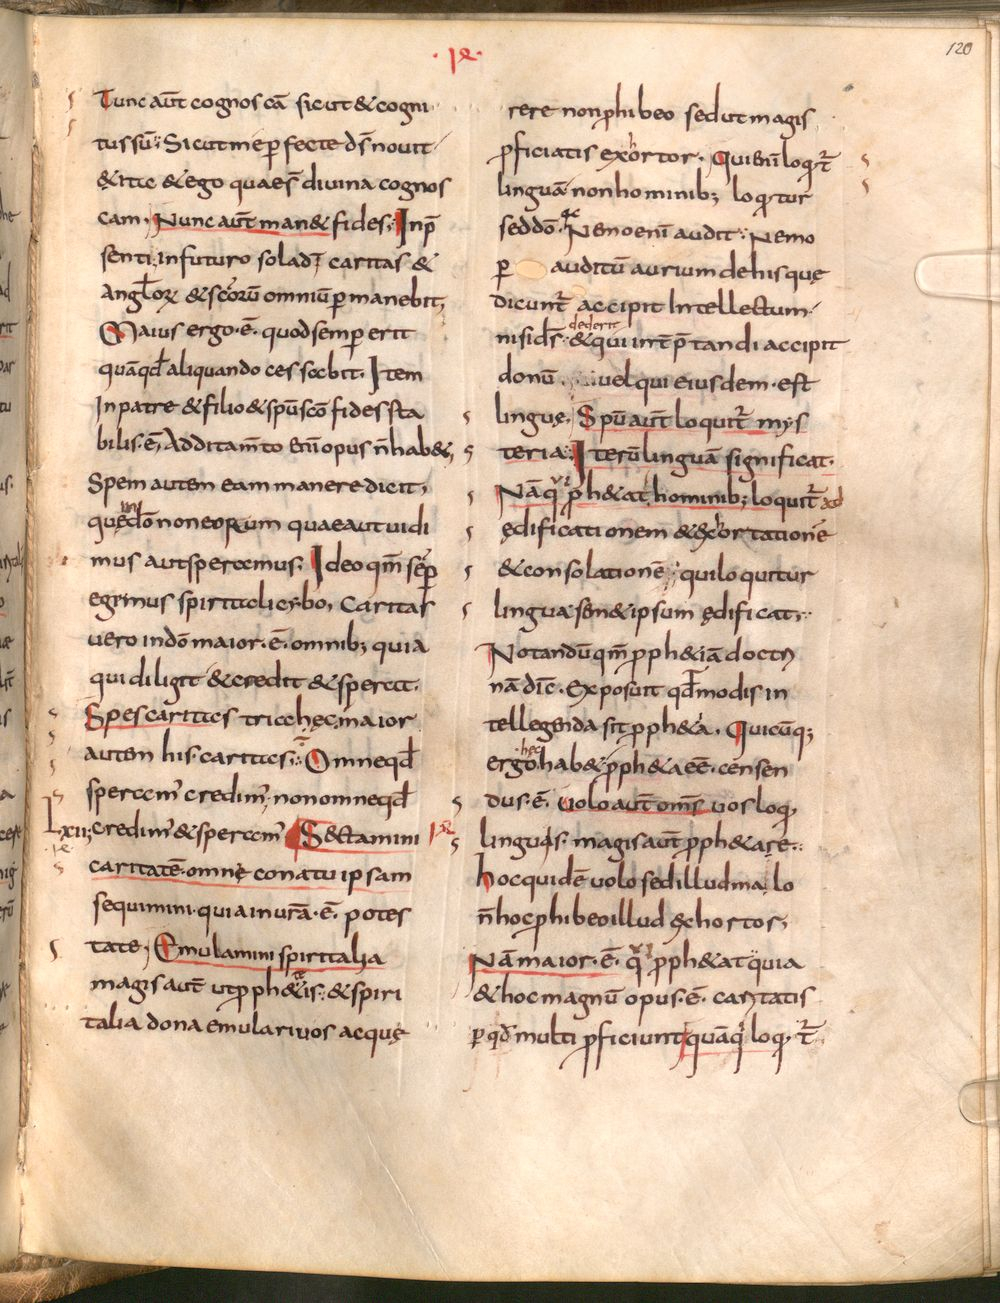 120
Tunc aūt cognoscā sicut & cogni
tus sū. Sicut me perfecte d̄s nouit
& ita & ego quae s̄ diuina cognos
cam. Nunc aūt man& fides. In p̄
senti; in futuro sola d̄r caritas &
angl̄orꝝ & sc̄orū omniū ꝑmanebit,
Maius ergo ē. quod semꝑ erit
quā qd̄ aliquando cessabit. Item
In patre & filio & spū sc̄o fides sta
bilis ē, Additam̄to enī opus n̄ hab&,
Spem autem eam manere dicit,
quę in dō non eorum quae aut uidi
mus aut speramus. Ideo qm̄ semꝑ
egrimus spiritali cybo, Caritas
uero in dōm maior ē. omnib; quia
qui diligit & credit & sperat.
Spes caritas tria hęc maior
autem his. caritas. Omne qd̄
speram; credim; non omne qd̄
Lxii; credim; & speram; Sectamini
caritatē. omne conatu ipsam
sequimini. quia in ur̄a ē. potes
tate, Emulamini spiritalia
magis aūt ut proph&&is. & spiri
talia dona emulari uos aeque
rere non ꝓhibeo sed ut magis
ꝓficiatis exortor. Qui enī loqr̄
linguā non hominib; loqr̄tur
sed dō. Nemo enī audit. Nemo
ꝑ auditū aurium de his quę
dicunt̄ accipit Intellectum.
nisi d̄s dederit & qui int̄ꝑtandi accipit
donū uel qui eiusdem est
linguę. Spū aūt loquit̄ mys
teria. Iterū linguā significat.
Nā q ꝓph&at hominib; loquit̄ ad
ędificationem & exortationē
& consolationē, qui loqutur
lingua sem&ipsum ędificat,
Notandū qm̄ ꝓph&iā doctri
nā dic̄. Exposuit qd̄ modis in
tellegenda sit ꝓph&ia. Quicūq;
ergo hęc hab& ꝓph&a eē. censen
dus ē. Uolo aūt om̄s uos loq,
linguis. magis aūt ꝓph&are.
hoc quidē uolo sed illud malo
n̄ hoc ꝓhibeo illud exhortor,
Nā maior ē. q ꝓph&at quia
& hoc magnū opus ē. caritatis
ꝑ qd̄ multi ꝓficiunt quā q loqt̄